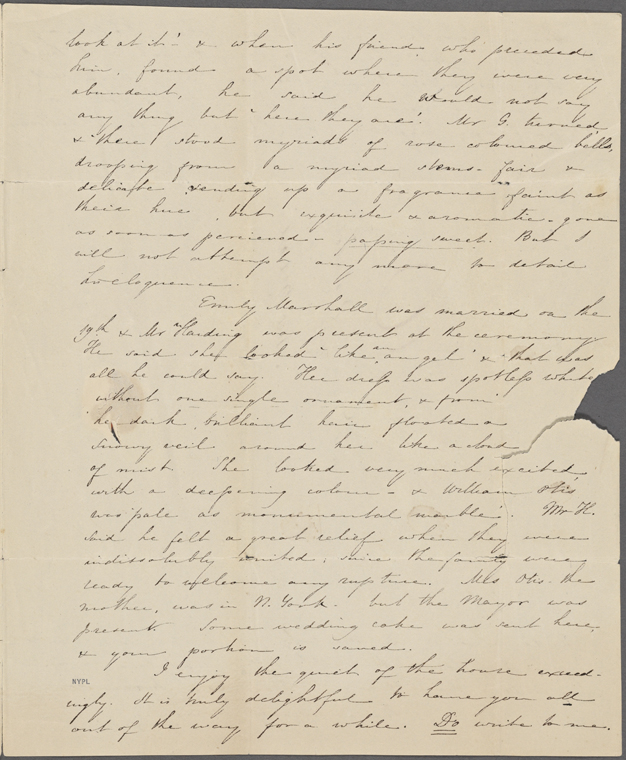 look at it"! & when his friend, who preceded
him, found a spot where they were very
abundant, he said he would not say
any thing but "here they are". Mr G. turned
& "there" stood myriads of rose coloured bells,
drooping from a myriad stems - fair &
delicate sending up a fragrance "faint as
their hue, but exquisite & aromatic - gone
as soon as percieved - passing sweet. But I
will not attempt any more to detail
his eloquence.
Emily Marshall was married on the
19th & Mr Harding was present at the ceremony
He said she looked "like an angel" & that was
all he could say. Her dress was spotless white
without one single ornament, & from
her dark, brilliant hair floated a
snowy veil around her like a cloud
of mist. She looked very much excited
with a deepening colour - & William Otis
was pale as monumental marble. Mr H.
said he felt a great relief when they were
indissolubly united, since the family were
ready to welcome any rupture. Mrs Otis the
mother, was in N. York - but the Mayor was
present. Some wedding cake was sent here,
& your portion is saved.
I enjoy the quiet of the house exceed-
NYPL
ingly. It is truly delightful to have you all
out of the way for a while. Do write to me.